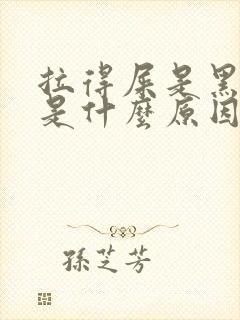 拉得屎是黑
是什麼原因
孫芝芳